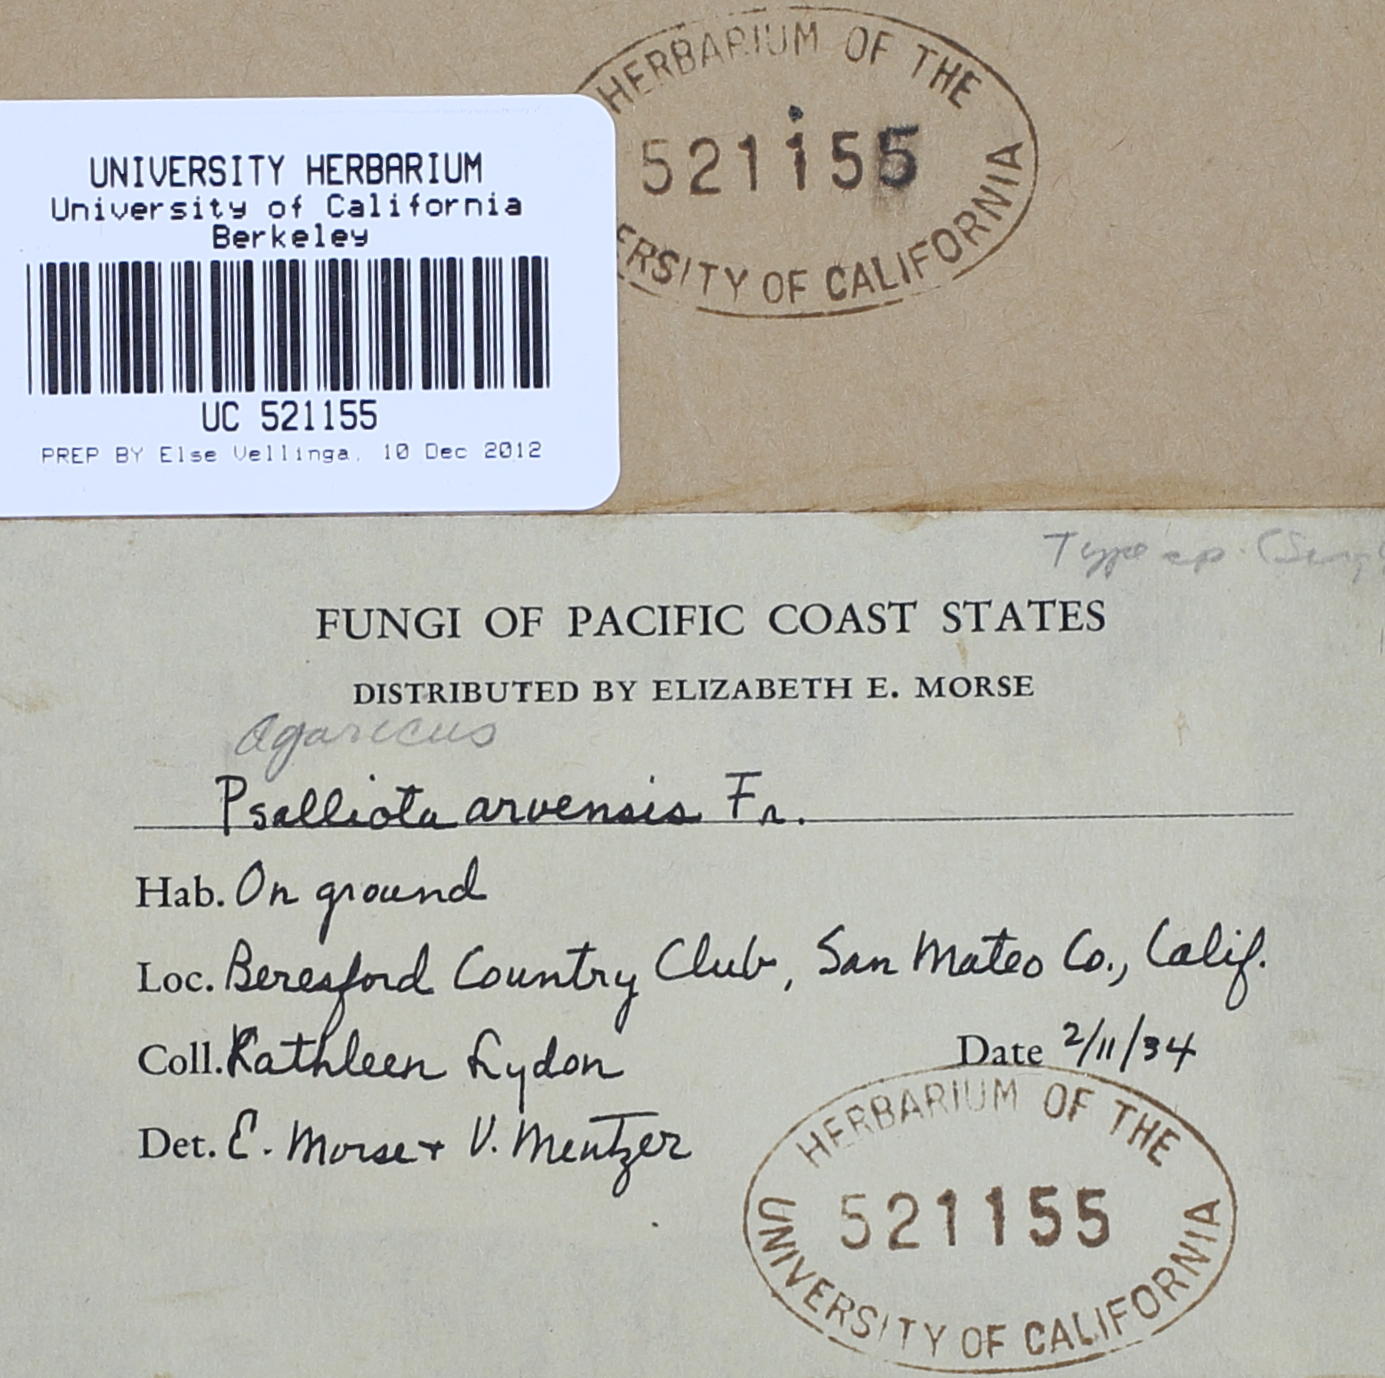 HERBARIUM OF THE
521155
ERSITY OF CALIFORNIA
UNIVERSITY HERBARIUM
University of California
Berkeley
UC 521155
PREP BY Else Vellinga, 10 Dec 2012
Type sp.
FUNGI OF PACIFIC COAST STATES
DISTRIBUTED BY ELIZABETH E. MORSE
Agaricus
Psalliota arvensis Fr.
Hab. On ground
Loc. Beresford Country Club, San Mateo Co., Calif.
Coll. Kathleen Lydon Date 2/11/34
Det. E. Morse + V. Mentzer
HERBARIUM OF THE
521155
UNIVERSITY OF CALIFORNIA